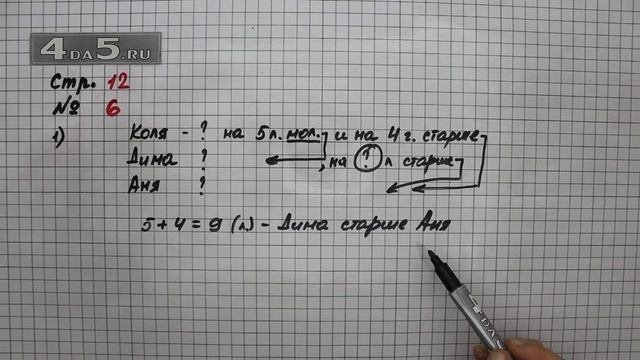 4DA5.RU
Стр. 12
№ 6
1) Коля - ? на 5л. мол. и на 4 г. старше
Дима ? , на ? л старше
Аня ?
5+4=9 (л) - Дима старше Аня
4DA5